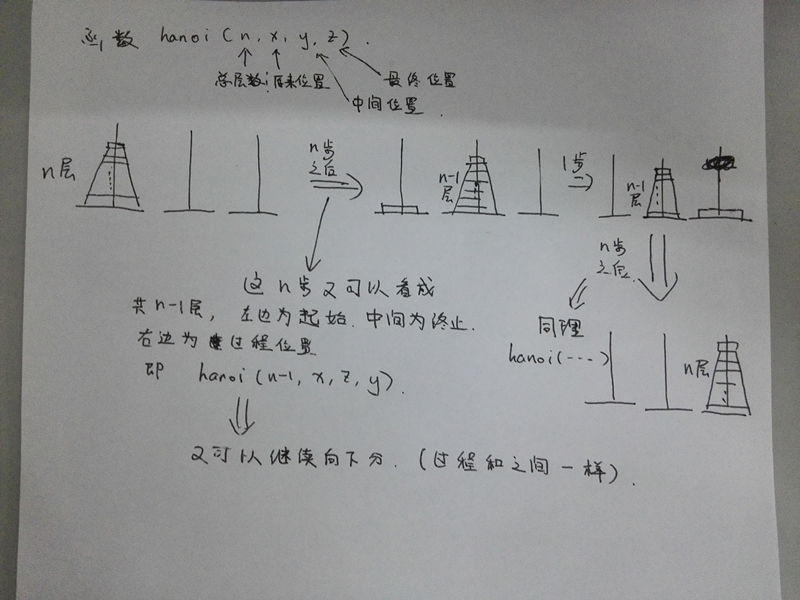 函数 hanoi (n, x, y, z).
总层数 原来位置 最终位置
中间位置
n层
n步
之后
n-1
层
1步
n-1
层
n步
之后
这n步又可以看成
共n-1层, 左边为起始. 中间为终止.
右边为 过程位置
即 hanoi (n-1, x, z, y).
同理
hanoi(····)
n层
又可以继续向下分. (过程和之间一样).